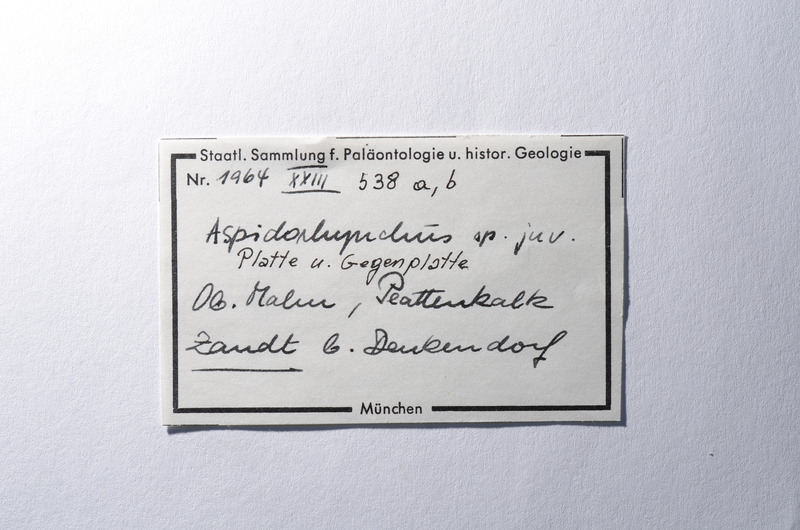 Staatl. Sammlung f. Paläontologie u. histor. Geologie
Nr. 1964 XXIII 538 a, b
Aspidorhynchus sp. juv.
Platte u. Gegenplatte
Ob. Malm, Plattenkalk
Zandt b. Denkendorf
München